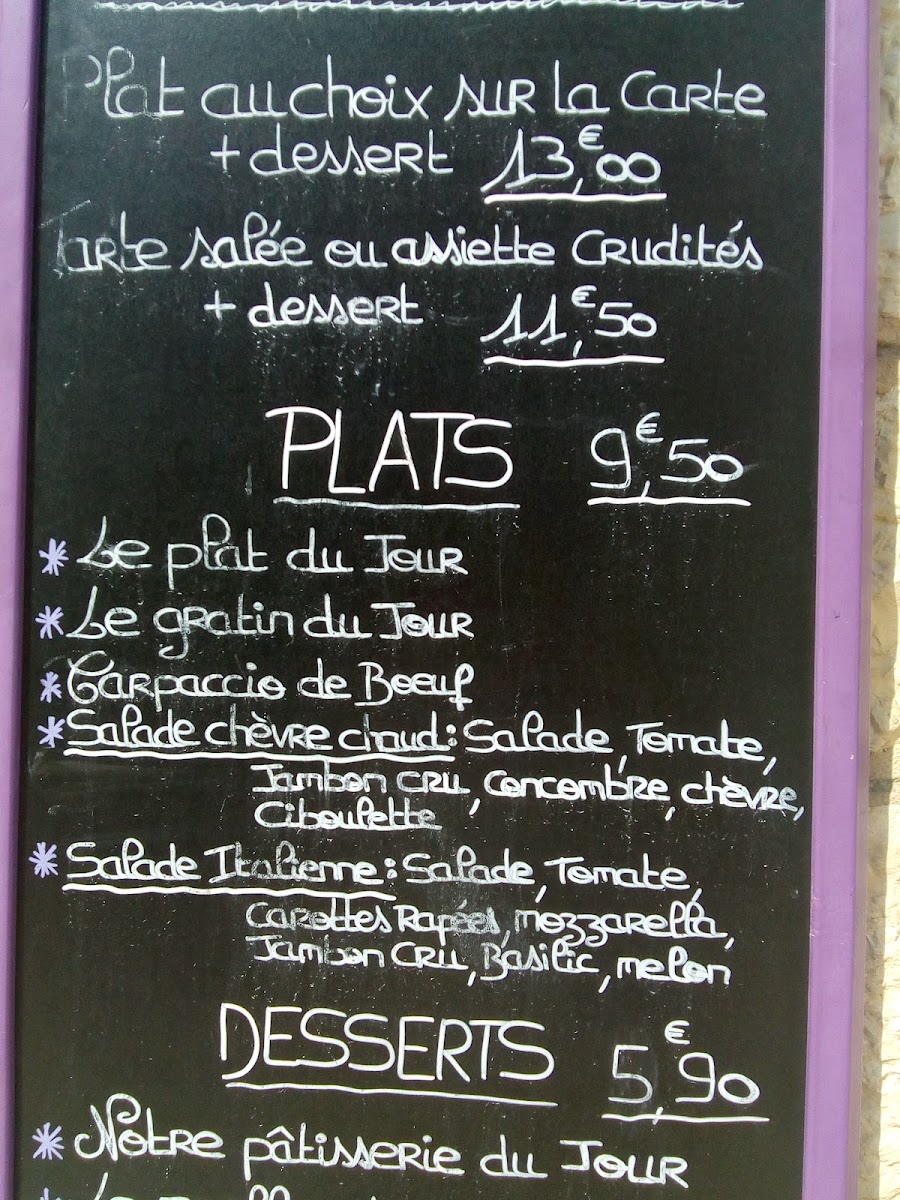 Plat au choix sur la Carte
+ dessert 13,€00
Tarte salée ou assiette Crudités
+ dessert 11,€50
PLATS 9,€50
* Le plat du Jour
* Le gratin du Jour
* Carpaccio de Boeuf
* Salade chèvre chaud : Salade, Tomate,
Jambon cru, concombre, chèvre,
Ciboulette
* Salade Italienne : Salade, Tomate,
Carottes Rapées, mozzarella,
Jambon CRU, Basilic, melon
DESSERTS 5,€90
* Notre pâtisserie du Jour